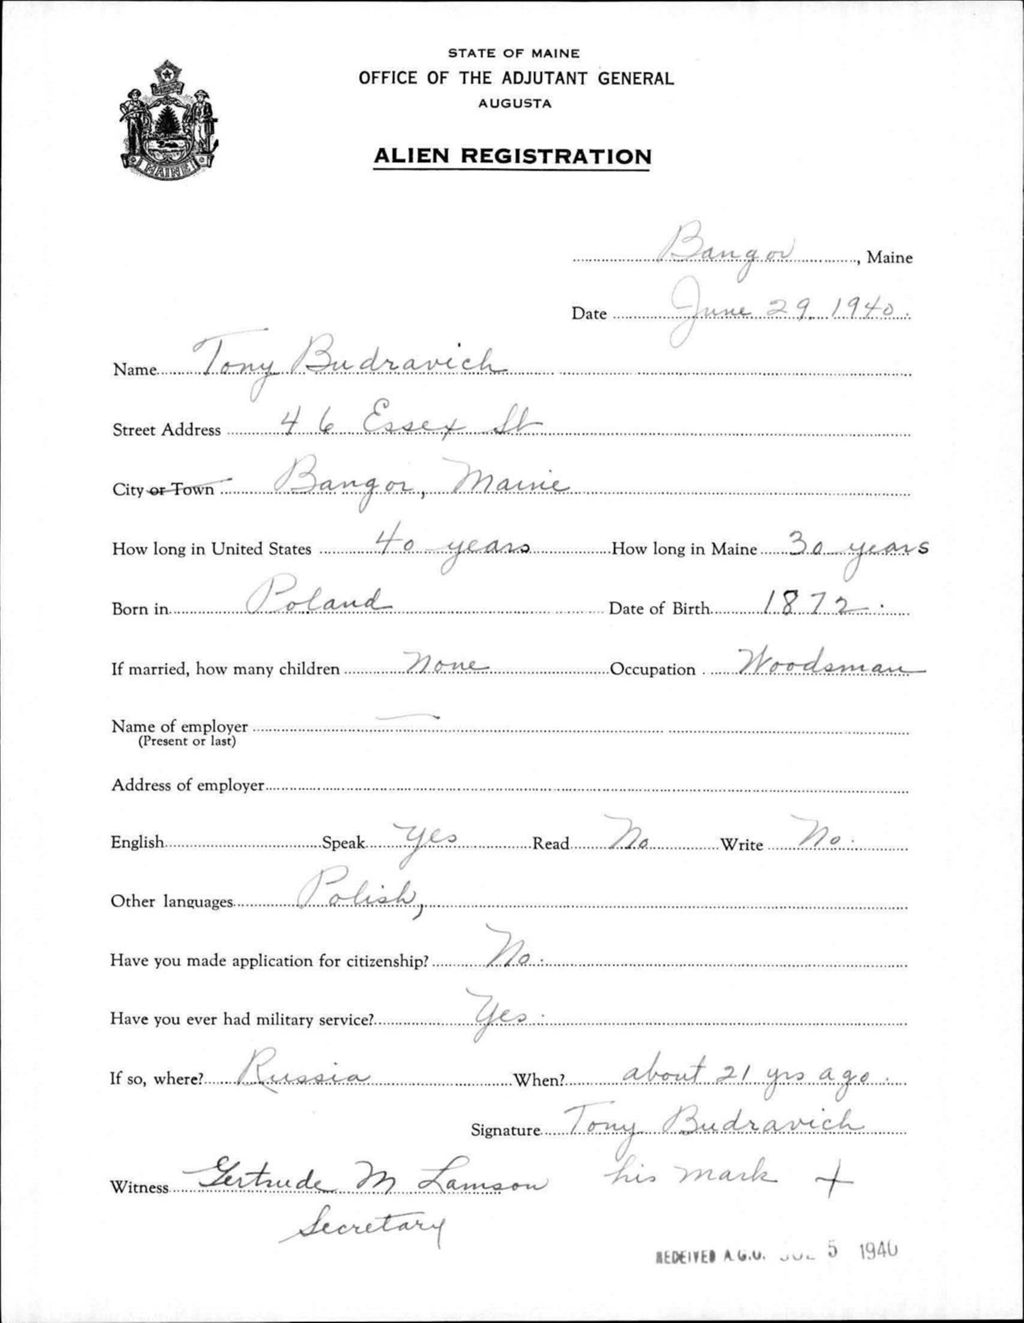 STATE OF MAINE
OFFICE OF THE ADJUTANT GENERAL
AUGUSTA
ALIEN REGISTRATION
MAINE
Bangor, Maine
Date June 29, 1940.
Name Tony Budravich
Street Address 46 Essex St
City or Town Bangor, Maine
How long in United States 40 years How long in Maine 30 years
Born in Poland Date of Birth 1872.
If married, how many children None Occupation Woodsman
Name of employer —
(Present or last)
Address of employer
English Speak Yes Read No Write No.
Other languages Polish,
Have you made application for citizenship? No.
Have you ever had military service? Yes.
If so, where? Russia When? about 21 yrs ago.
Signature Tony Budravich
Witness Gertrude M Lamson his mark +
Secretary
RECEIVED A.G.O. JUL 5 1940